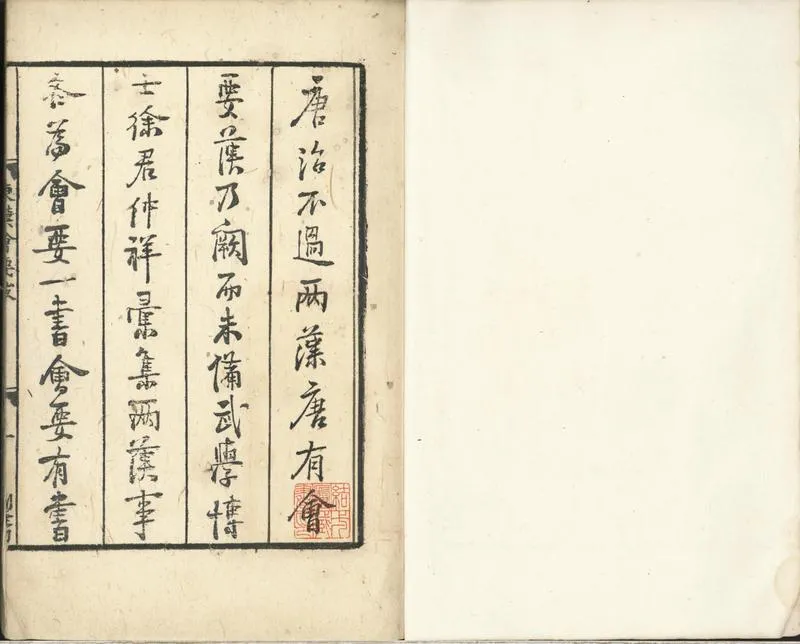 唐治不過兩漢唐有會
要漢乃闕而未備武學博
士徐君仲祥彙集兩漢事
為會要一書會要有書